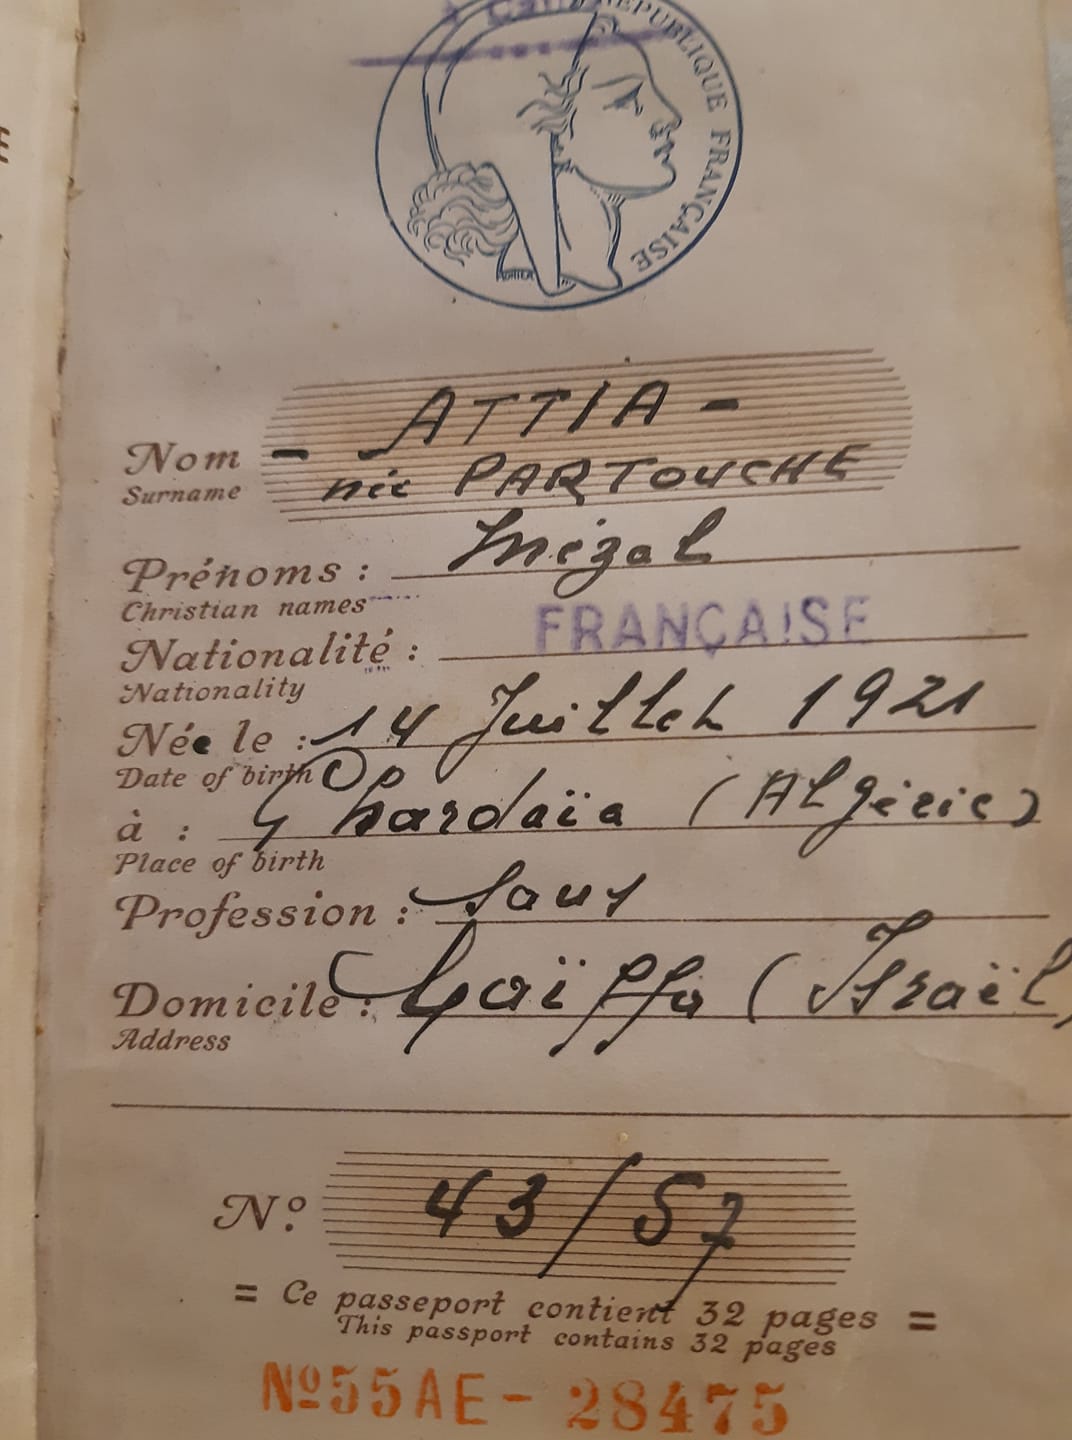 RÉPUBLIQUE FRANÇAISE
Nom - ATTIA -
Surname née PARTOUCHE
Prénoms : Mézal
Christian names
Nationalité : FRANÇAISE
Nationality
Née le : 14 Juillet 1921
Date of birth
à : Ghardaïa (Algérie)
Place of birth
Profession : Sans
Domicile : Caïffa (Israël)
Address
Nº 43/57
= Ce passeport contient 32 pages =
This passport contains 32 pages
Nº55AE - 28475